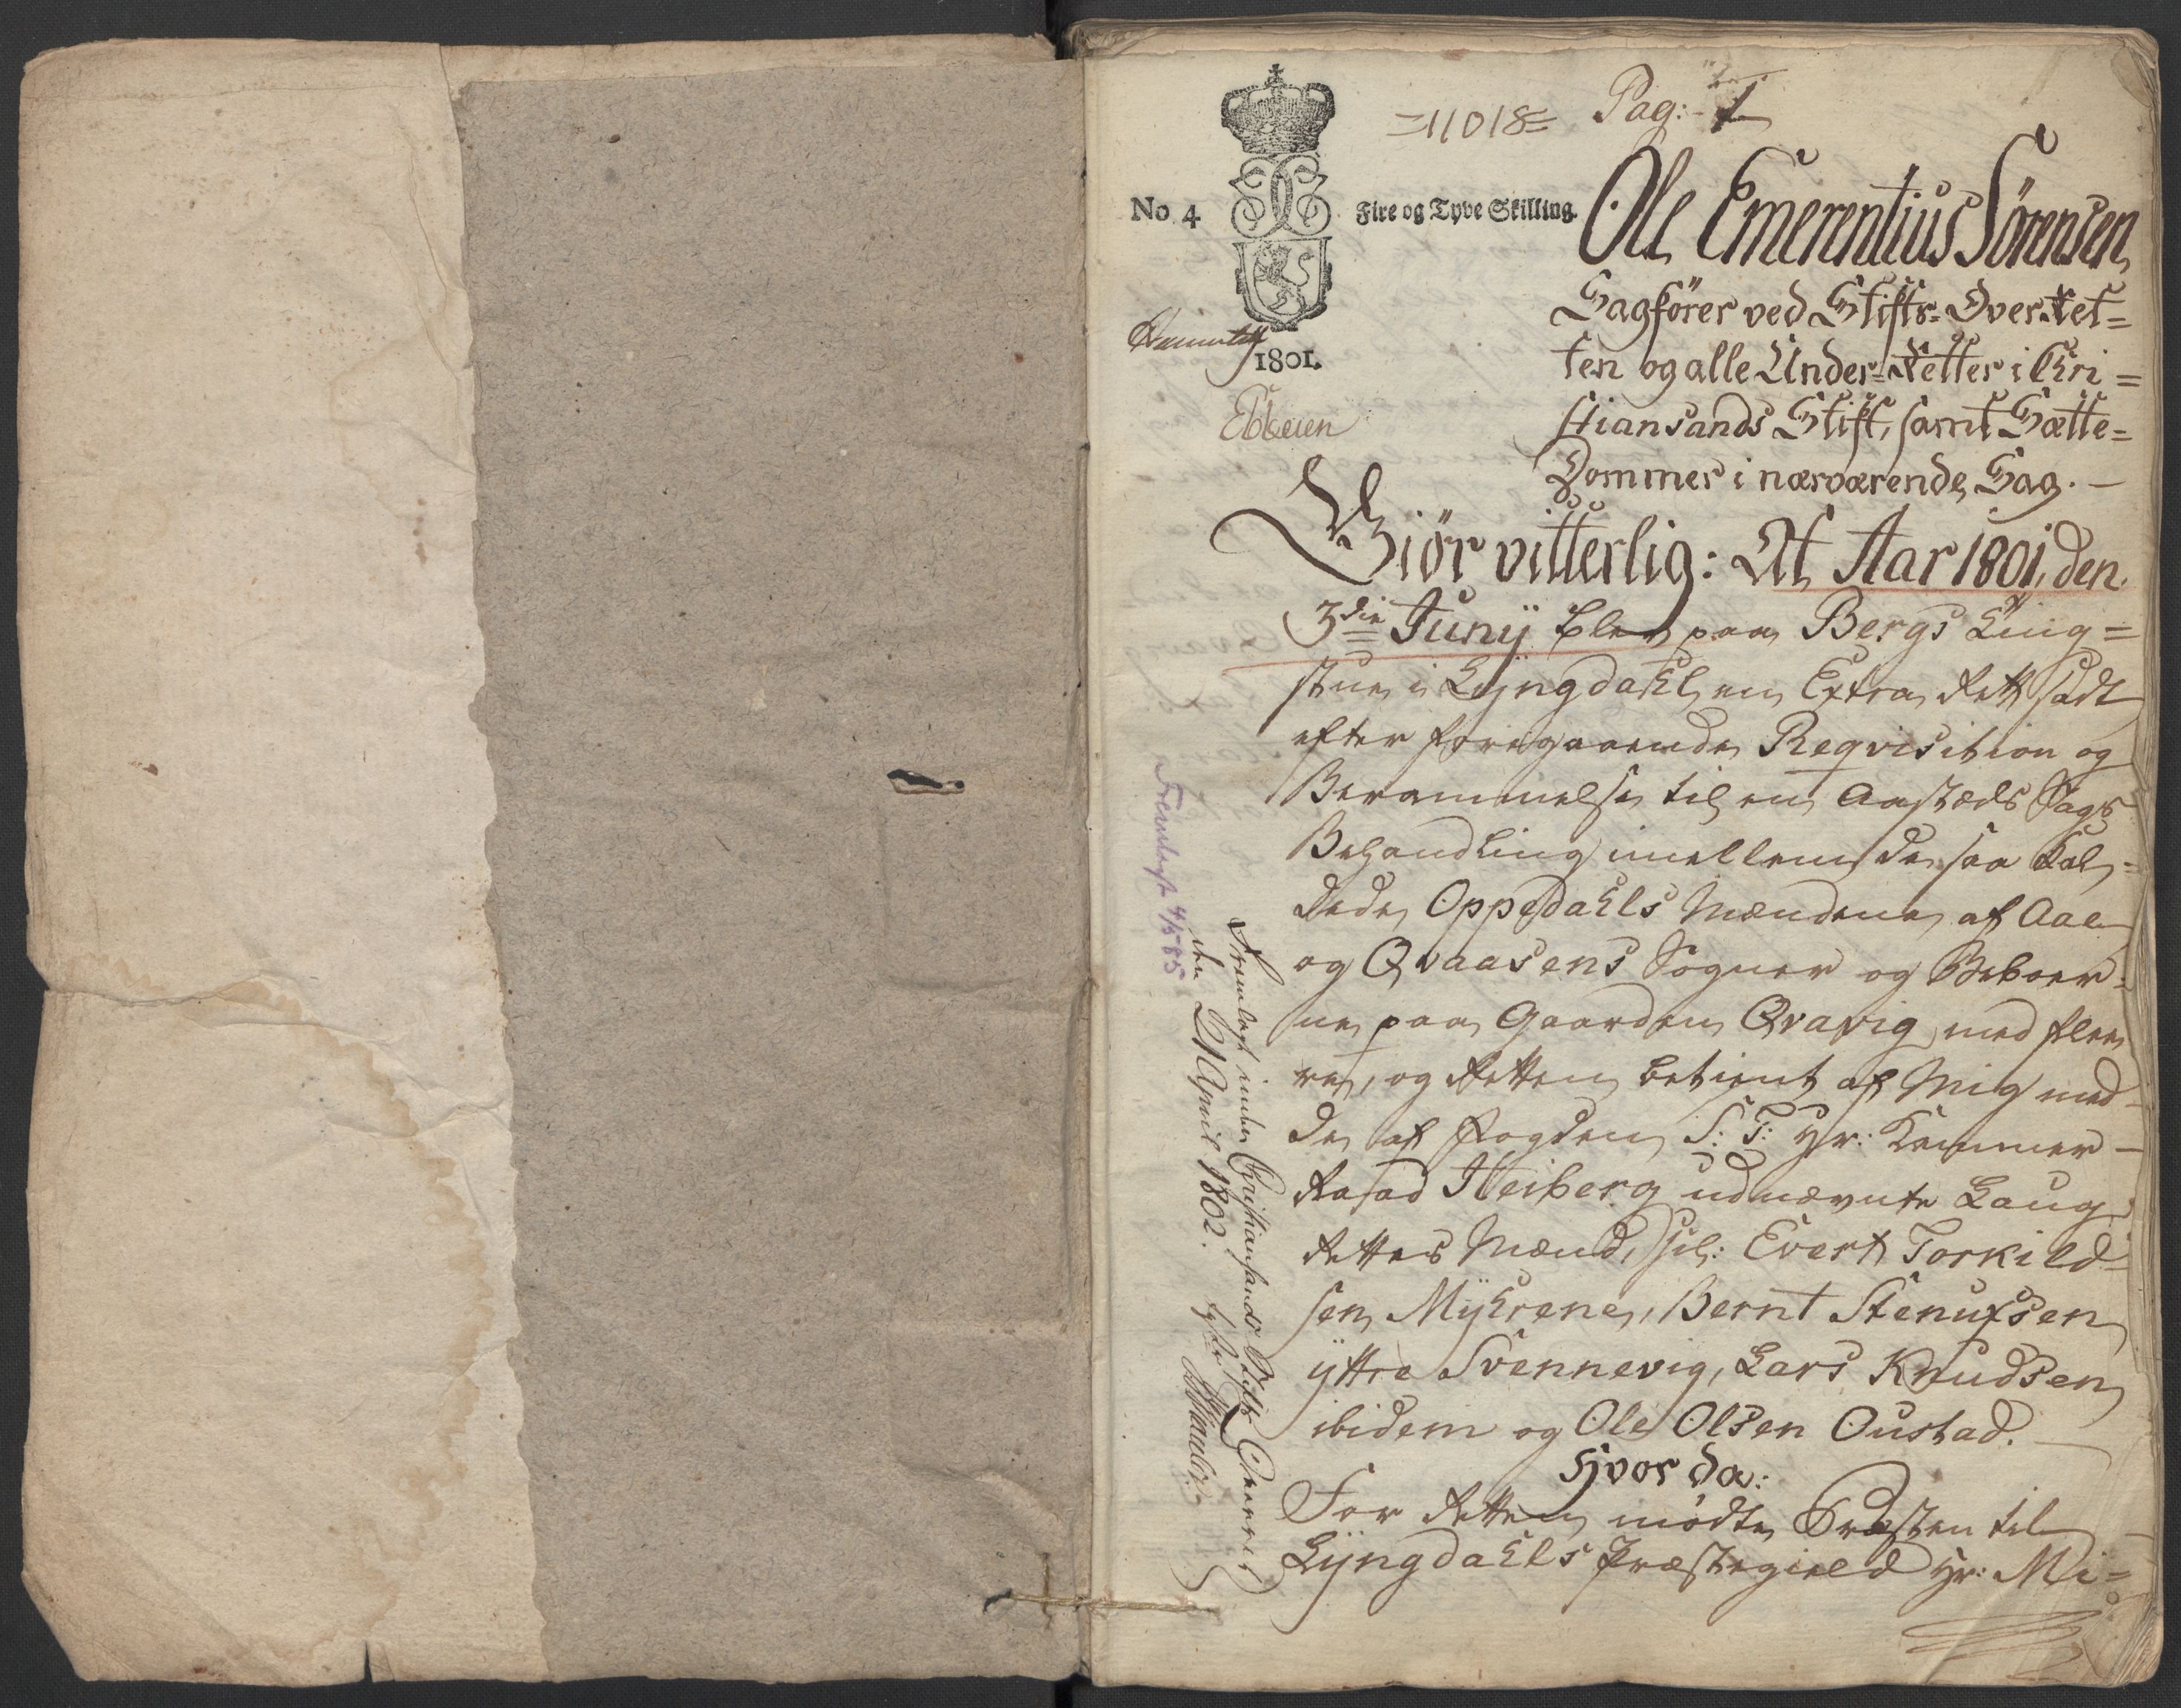 =11018= Pag: 1
No. 4 Fire og Tyve Skilling.
1801.
Ebbesen
Ole Emerentius Sörensen,
Sagförer ved Stifts-Over-Ret=
ten og alle Under-Retter i Chri=
stiansands Stift, samt Sætte=
Dommer i nærværende Sag. —
Giör vitterlig: At Aar 1801, den
3die Junÿ blev paa Bergs Ting=
stue i Lyngdahl en Extra Rett sadt
efter foregaaende Reqvisition og
Berammelse til en Aastæds Sags
Behandling imellem de saa kal=
dede Oppedahls Mændene af Aae
og Qvaasens Sogner og Beboer=
ne paa Gaarden Qvavig med flee
re, og Retten betient af Mig med
de af Fogden S: T: Hr: Kammer
Raad Heiberg udnævnte Laug
Rettes Mænd, sil: Evert Torkild
sen Mÿhrene, Bernt Stenufsen
ÿttre Svennevig, Lars Knudsen
ibidem og Ole Olsen Oustad.
Hvor da:
For Retten mødte Præsten til
Lÿngdahls Præstegield Hr: Mi=
Fremlagt inden Christiansands Stifts Overret
den 21 April 1802.
Fremlagt 4/5 85